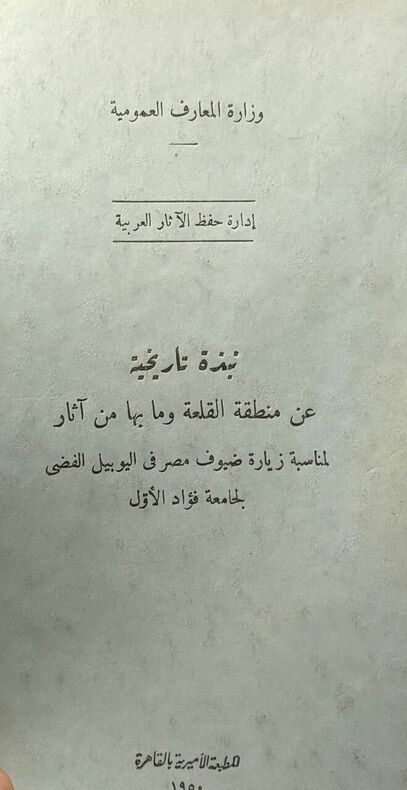 وزارة المعارف العمومية
إدارة حفظ الآثار العربية
نبذة تاريخية
عن منطقة القلعة وما بها من آثار
لمناسبة زيارة ضيوف مصر فى اليوبيل الفضى
لجامعة فؤاد الأوّل
المطبعة الأميرية بالقاهرة
١٩٥٠